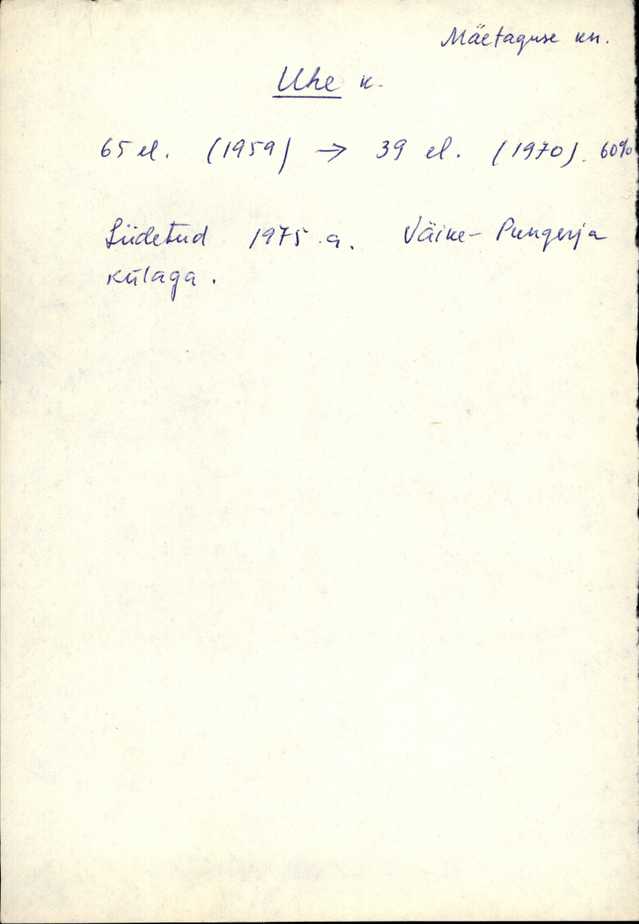 Mäetaguse kn.
Uhe k.
65 el. (1959) → 39 el. (1970). 60%
Liidetud 1975 a. Väike-Pungerja
külaga.